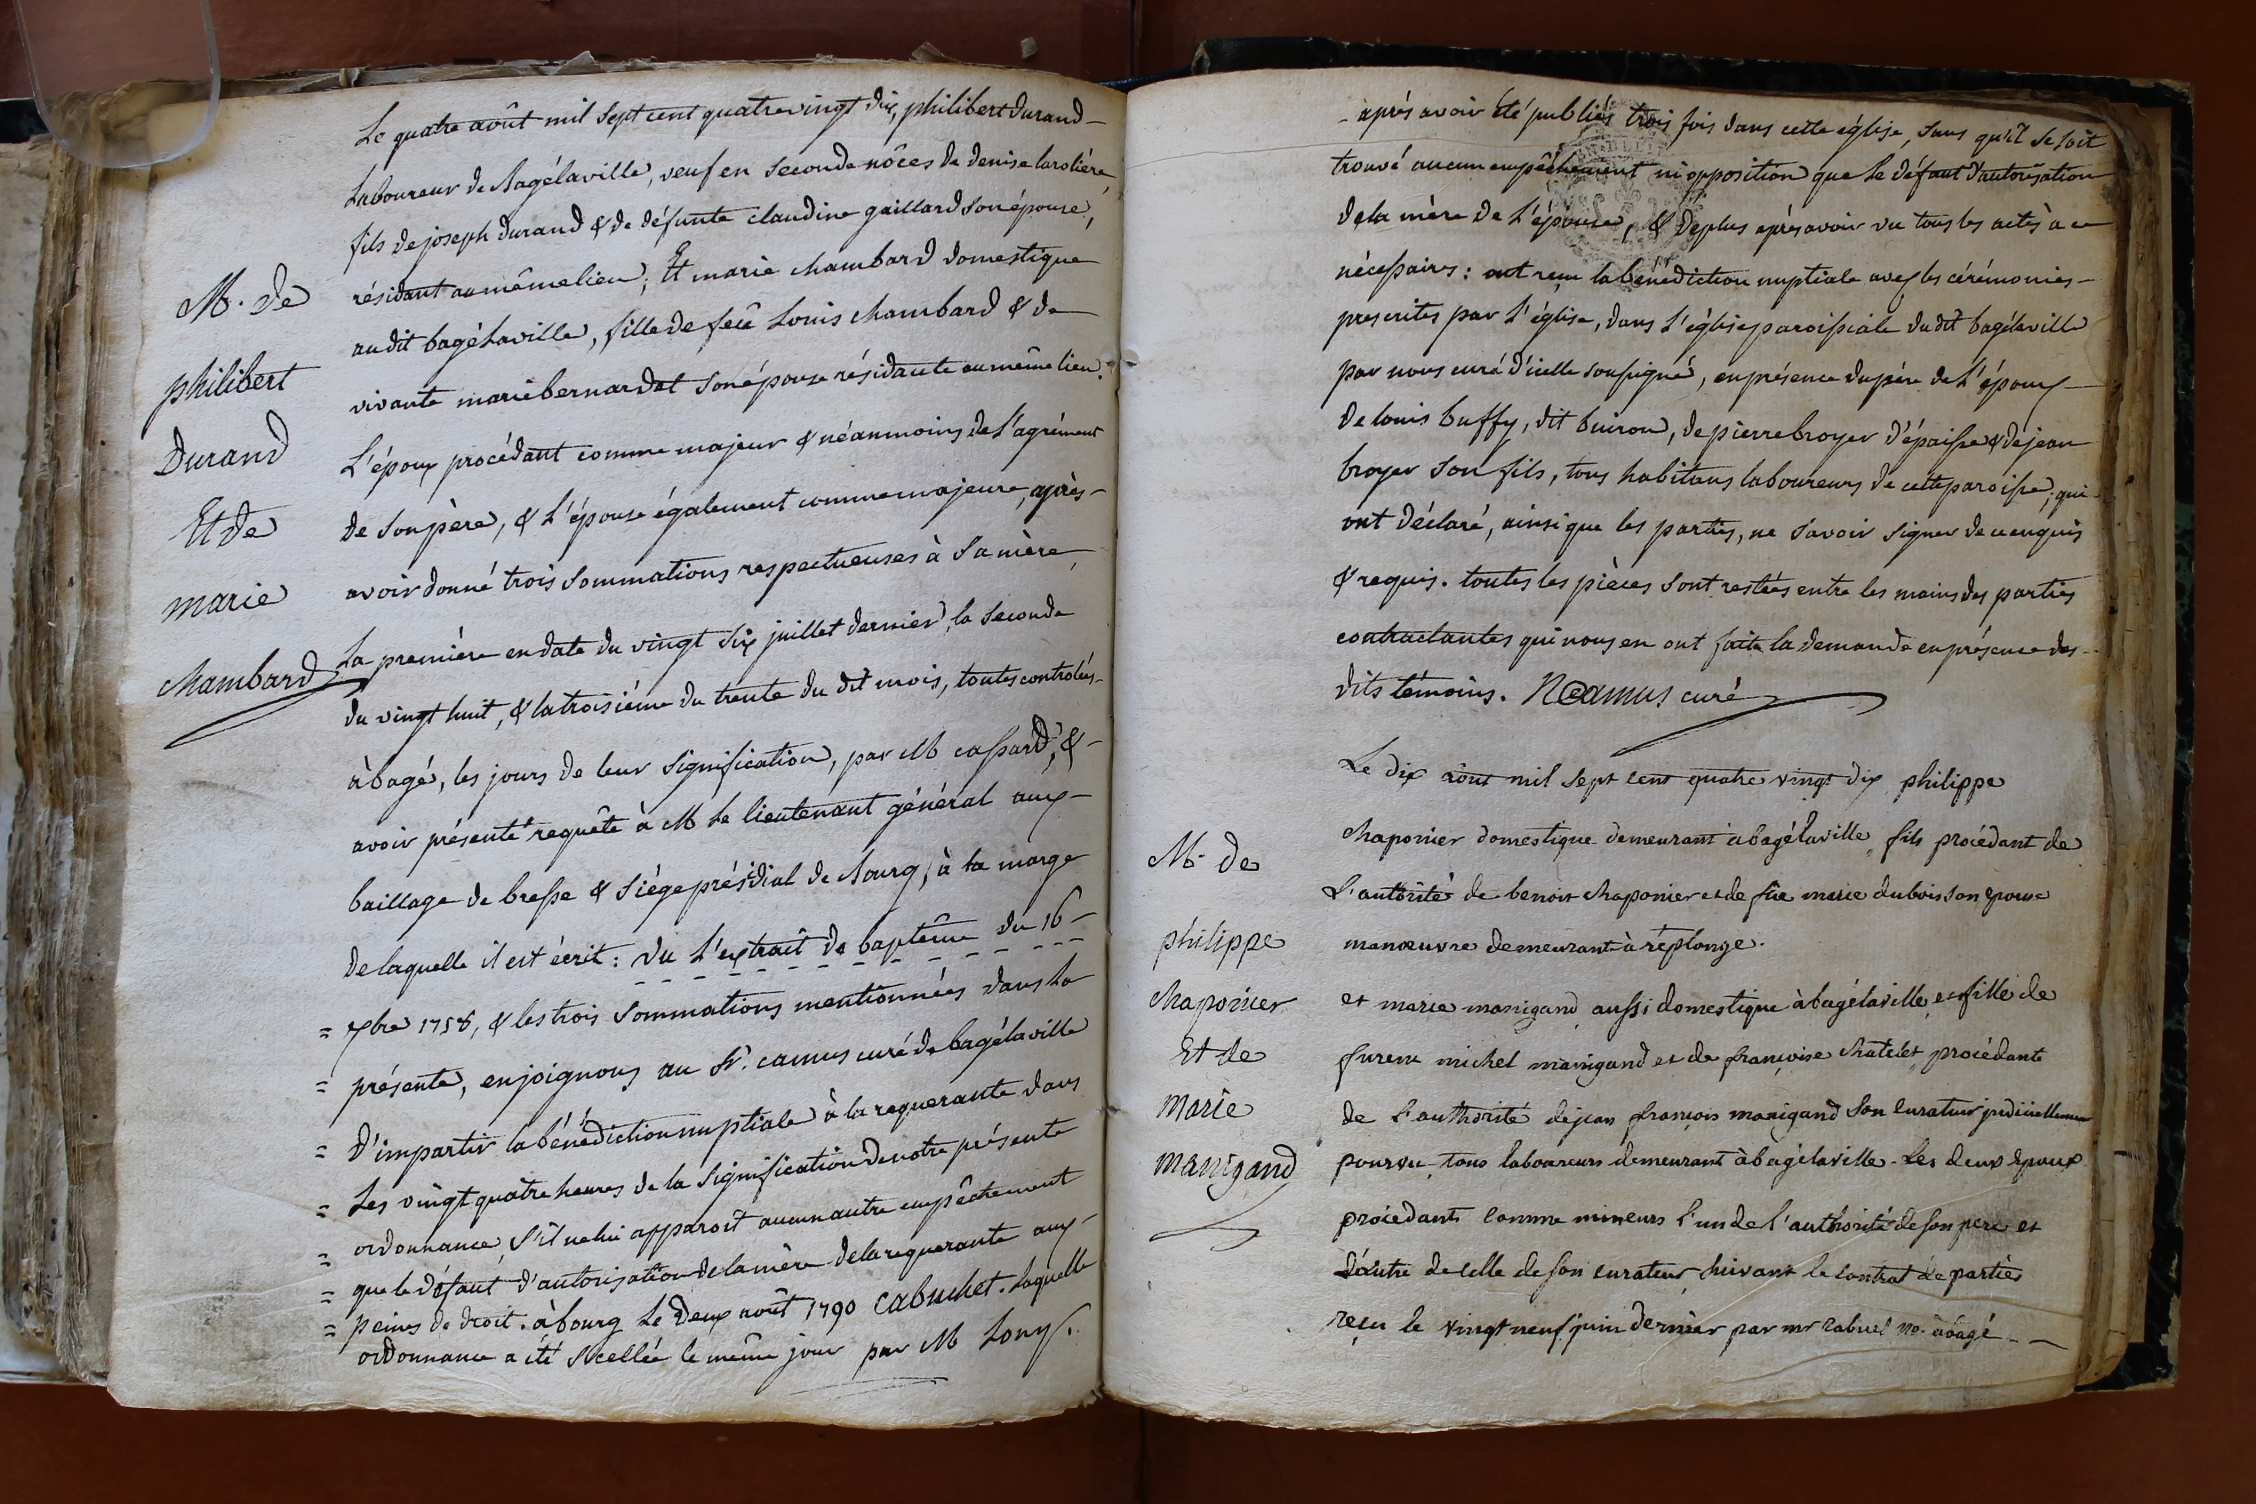 Le quatre août mil sept cent quatre vingt dix, philibert durand
Laboureur de Bagélaville, veuf en seconde nôces de denise laroliére,
fils de joseph durand & de défunte claudine gaillard son épouse,
résidant au même lieu; Et marie chambard domestique
au dit bagélaville, fille de feû Louis chambard & de
vivante marie bernardat son épouse résidante au même lieu.
L'époux procédant comme majeur & néanmoins de l'agrément
de son père, & l'épouse également comme majeure, après
avoir donné trois sommations respectueuses à sa mère,
La première en date du vingt six juillet dernier, la seconde
du vingt huit, & la troisiéme du trente du dit mois, toutes controlées
à bagé, les jours de leur signification, par M cassard, &
avoir présenté requête à M le lieutenant général aux
baillage de bresse & siége présidial de Bourg, à la marge
de laquelle il est écrit : vu l'extrait de baptême du 16
= xbre 1758, & les trois sommations mentionnées dans la
= présente, enjoignons au Sr. camus curé de bagélaville
= D'impartir la bénédiction nuptiale à la requerante dans
= Les vingt quatre heures de la signification de notre présente
= ordonnance, s'il ne lui apparoit aucun autre empêchement
= que le défaut d'autorisation de la mère de la requerante aux
= peines de droit. à bourg le deux août 1790 Cabuchet. Laquelle
ordonnance a été scellée le même jour par M Lonyf.
M. de
philibert
Durand
Et de
marie
chambard
après avoir été publiés trois fois dans cette église, sans qu'il se soit
trouvé aucun empêchement ni opposition que le défaut d'autorisation
de la mère de l'épouse, & de plus après avoir vu tous les actes à ce
nécessaires : ont reçu la bénédiction nuptiale avec les cérémonies
prescrites par l'église, dans l'église paroissiale dudit bagélaville
par nous curé d'icelle soussigné, en présence du père de l'époux
de louis buffy, dit buiron, de pierre broyer d'épaisse & de jean
broyer son fils, tous habitans laboureurs de cette paroisse, qui
ont déclaré, ainsi que les parties, ne savoir signer de ce enquis
& requis. toutes les pièces sont restées entre les mains des parties
contractantes qui nous en ont faite la demande en présence des
dits témoins. Camus curé
Le dix aout mil sept cent quatre vingt dix philippe
chaponier domestique demeurant a bagélaville, fils procédant de
L'autorité de benoit chaponier et de fue marie dubois son epouse
manœuvre demeurant à replonge.
et marie manigand aussi domestique à bagélaville et fille de
furent michel manigand et de françoise chatelet, procédante
de l'authorité de jean françois manigand son curateur judiciellement
pourvu tous laboureurs demeurant à bagélaville. Les deux epoux
procédants comme mineurs l'un de l'authorité de son pere et
l'autre de celle de son curateur, suivant le contrat de parties
reçu le vingt neuf juin dernièr par mr rabuel no. à bagé
M. de
philippe
chaponier
Et de
marie
manigand